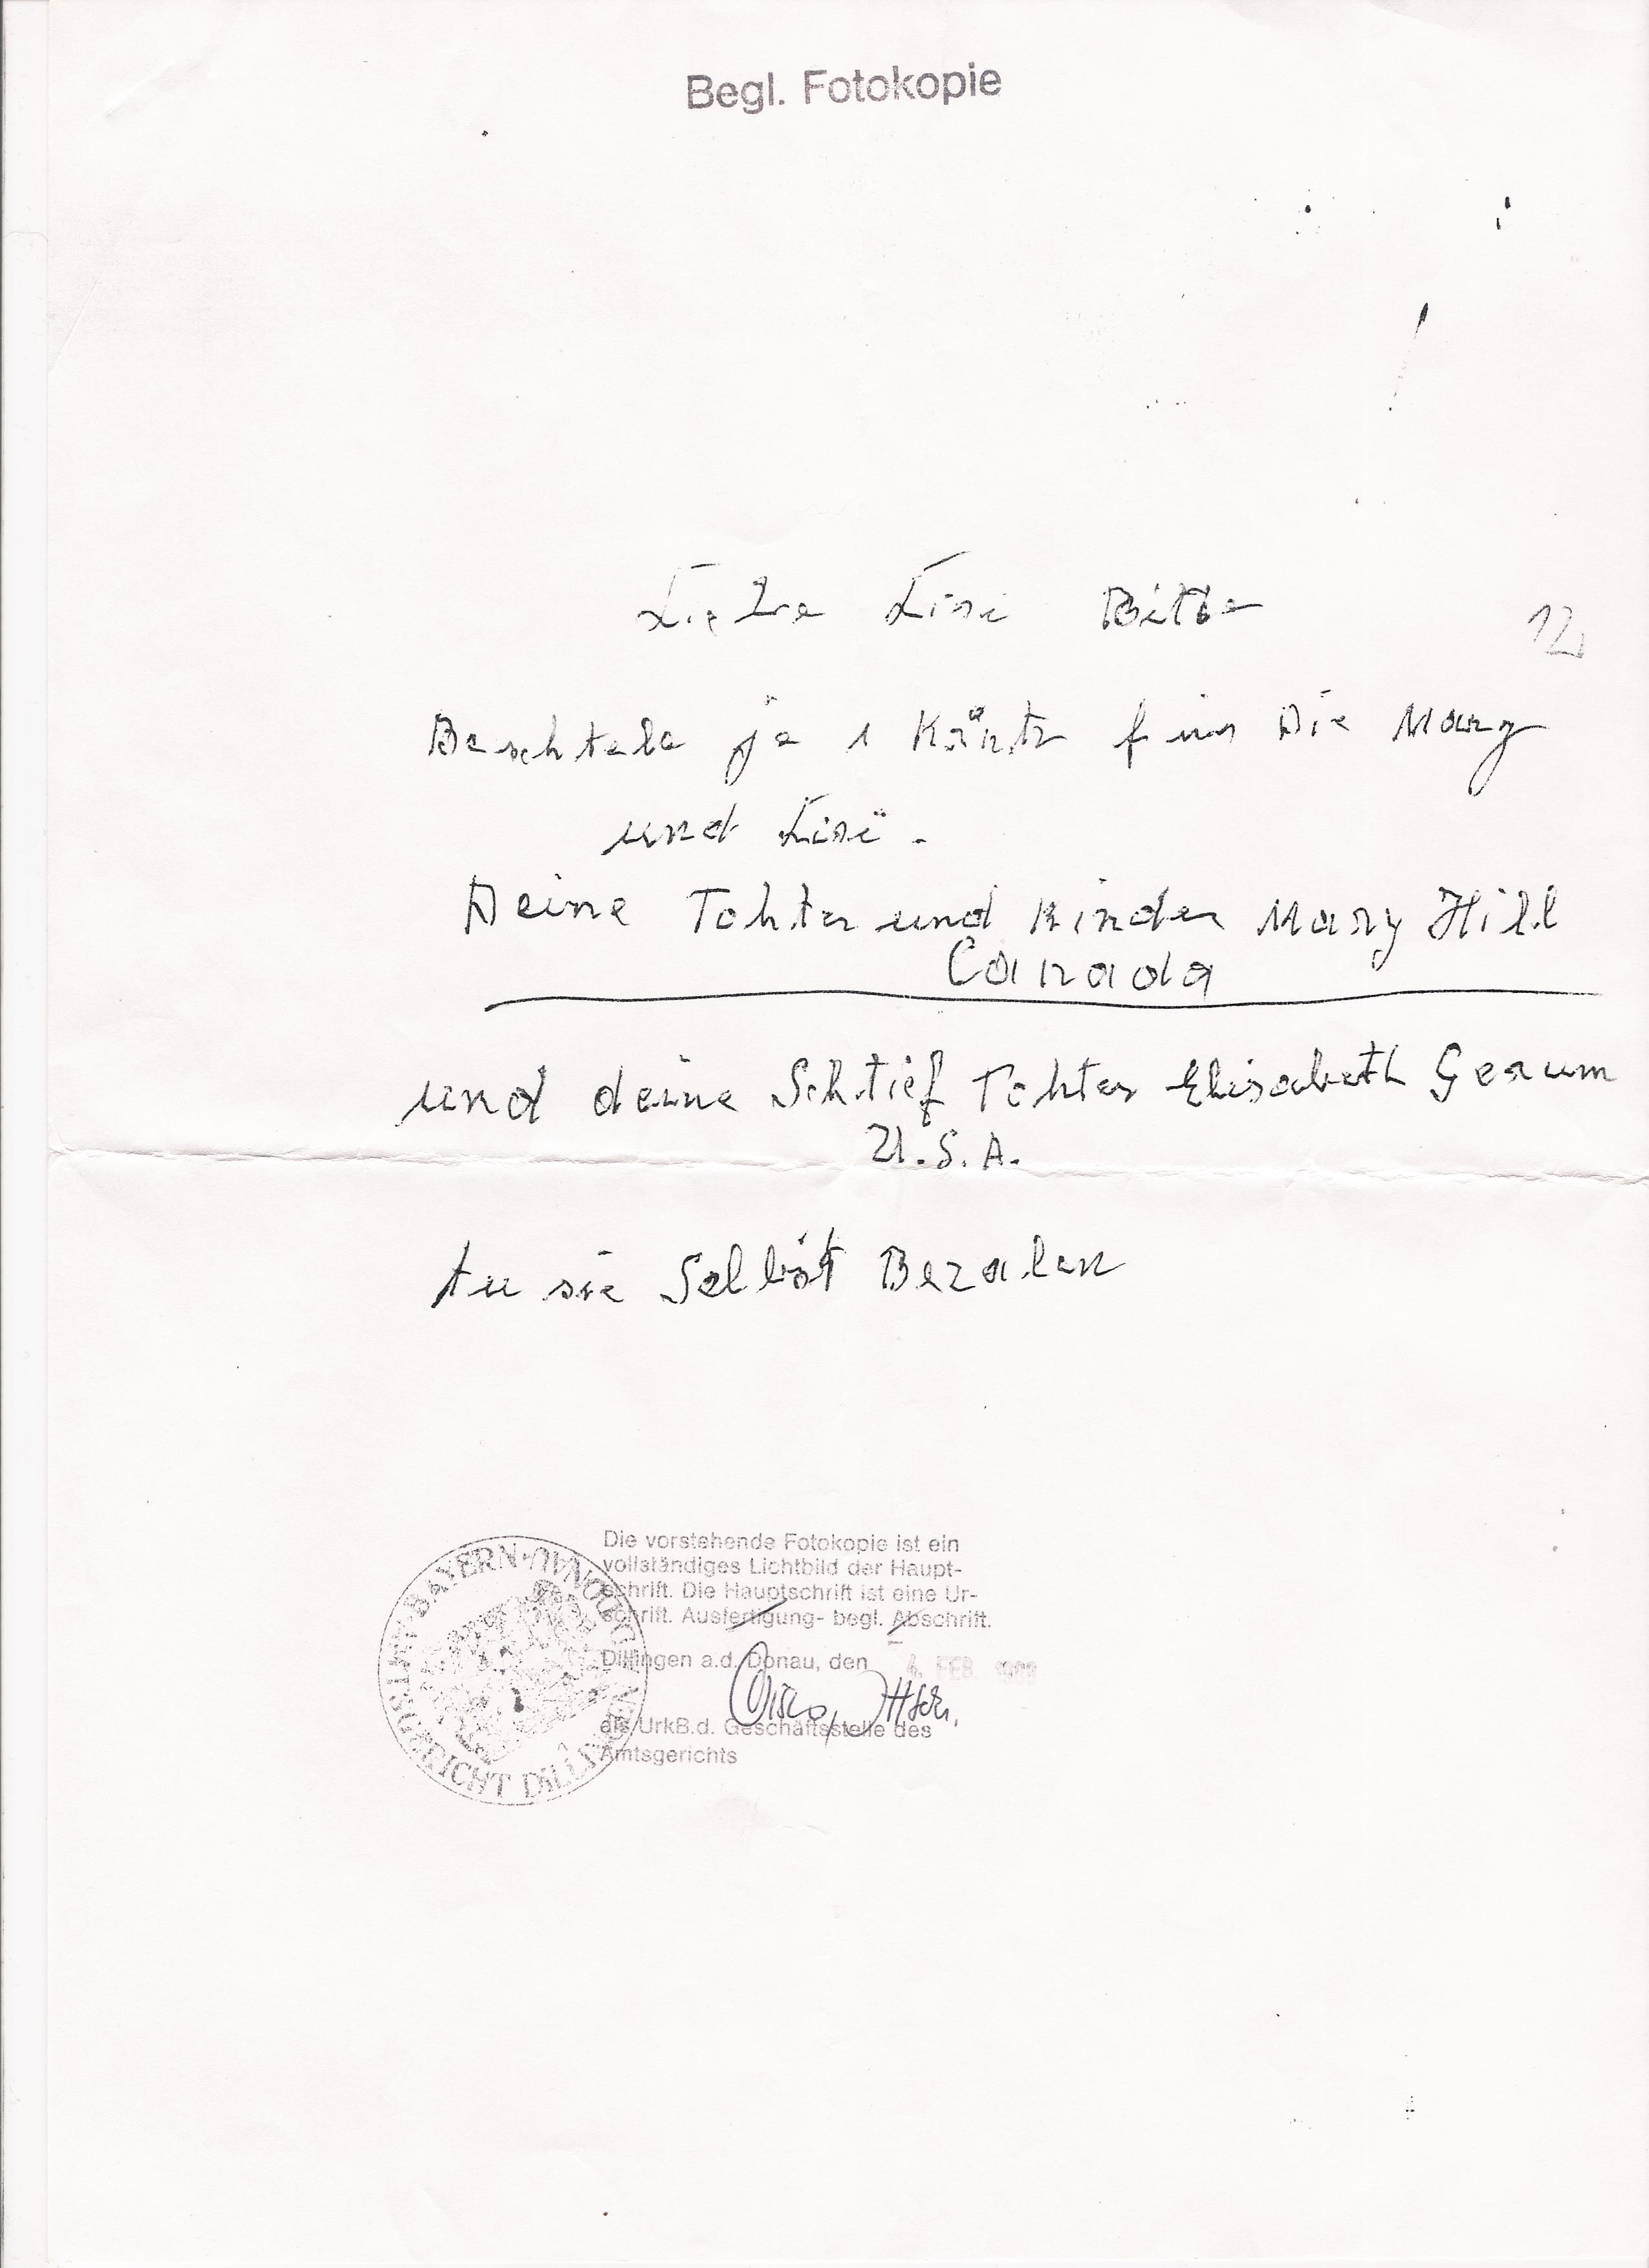 Begl. Fotokopie
Liebe Lisi Bitte
12
Beschtele je 1 Käntz für Die Mary
und Lisi.
Deine Tohter und Kinder Mary Hill
Canada
und deine Schtief Tohter Elisabeth Gerum
U.S.A.
tu sie Selbst Bezalen
Die vorstehende Fotokopie ist ein
vollständiges Lichtbild der Haupt-
schrift. Die Hauptschrift ist eine Ur-
schrift. Ausfertigung- begl. Abschrift.
Dillingen a.d. Donau, den 4. FEB.
als UrkB.d. Geschäftsstelle des
Amtsgerichts
AMTSGERICHT DILLINGEN A.D. DONAU · BAYERN